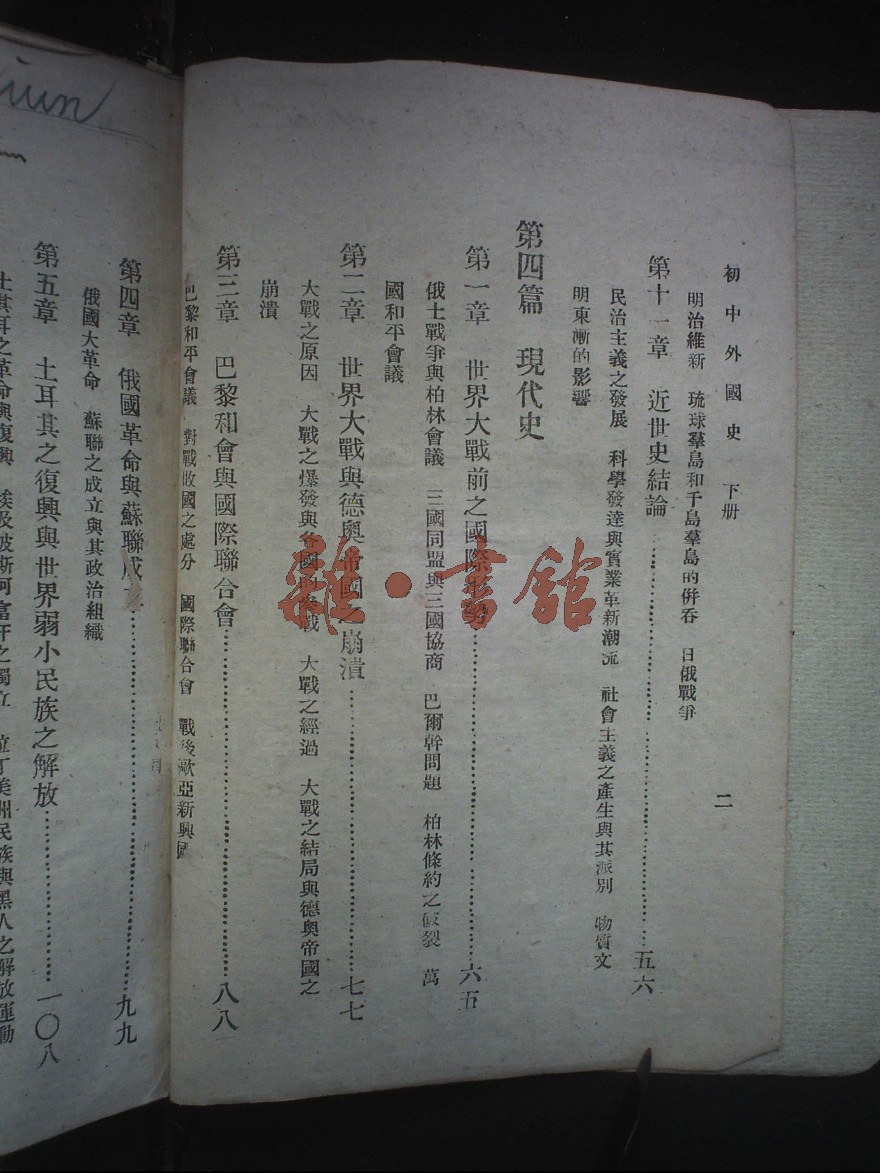 初中外國史 下册 二
明治維新 琉球羣島和千島羣島的併吞 日俄戰爭
第十一章 近世史結論……五六
民治主義之發展 科學發達與實業革新潮流 社會主義之產生與其派別 物質文
明東漸的影響
第四篇 現代史
第一章 世界大戰前之國際形勢……六五
俄土戰爭與柏林會議 三國同盟與三國協商 巴爾幹問題 柏林條約之破裂 萬
國和平會議
第二章 世界大戰與德奧帝國之崩潰……七七
大戰之原因 大戰之爆發與各國的參戰 大戰之經過 大戰之結局與德奧帝國之
崩潰
第三章 巴黎和會與國際聯合會……八八
巴黎和平會議 對戰敗國之處分 國際聯合會 戰後歐亞新興國
第四章 俄國革命與蘇聯成……九九
俄國大革命 蘇聯之成立與其政治組織
第五章 土耳其之復興與世界弱小民族之解放……一〇八
土耳其之革命與復興 埃及波斯阿富汗之獨立 拉丁美洲民族與黑人之解放運動
雜·書館